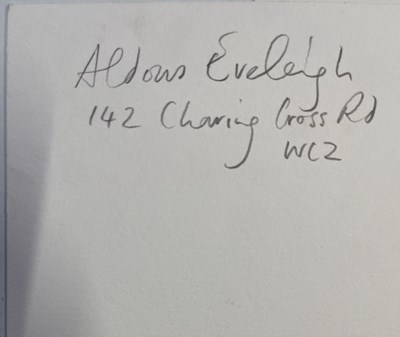 Aldous Eveleigh
142 Charing Cross Rd
WC2